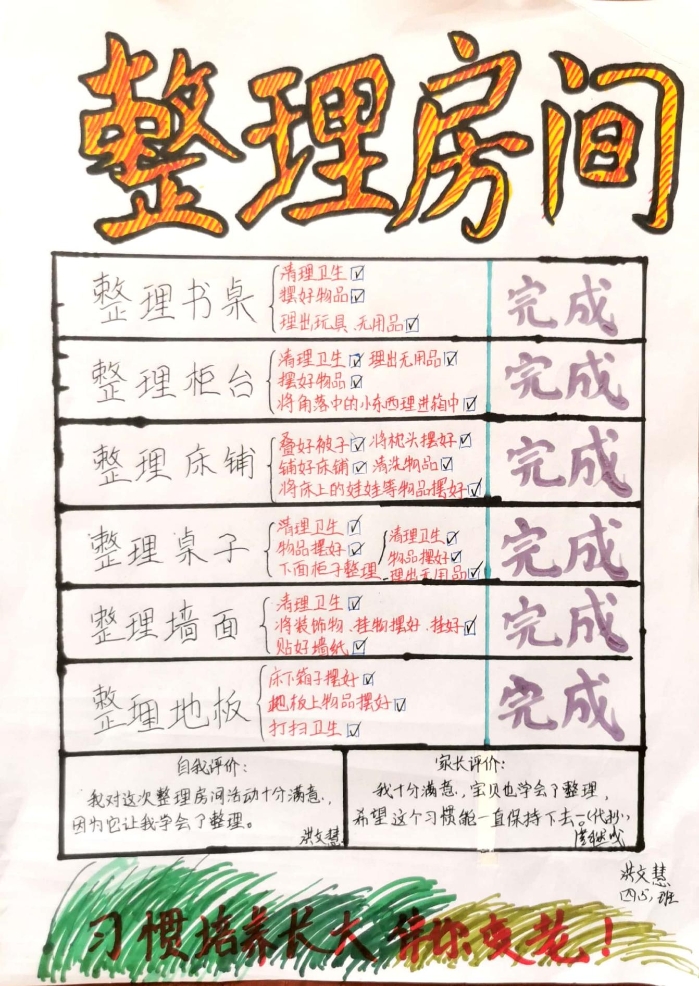 整理房间
整理书桌
清理卫生☑
摆好物品☑
理出玩具、无用品☑
完成
整理柜台
清理卫生☑ 理出无用品☑
摆好物品☑
将角落中的小东西理进箱中☑
完成
整理床铺
叠好被子☑ 将枕头摆好☑
铺好床铺☑ 清洗物品☑
将床上的娃娃等物品摆好☑
完成
整理桌子
清理卫生☑
物品摆好☑
下面柜子整理
清理卫生☑
物品摆好☑
理出无用品☑
完成
整理墙面
清理卫生☑
将装饰物、挂物摆好、挂好☑
贴好墙纸☑
完成
整理地板
床下箱子摆好☑
地板上物品摆好☑
打扫卫生☑
完成
自我评价:
我对这次整理房间活动十分满意,
因为它让我学会了整理。
洪文慧
家长评价:
我十分满意,宝贝也学会了整理,
希望这个习惯能一直保持下去。(代抄)
洪文慧
四(5)班
习惯培养长大 伴你变老!